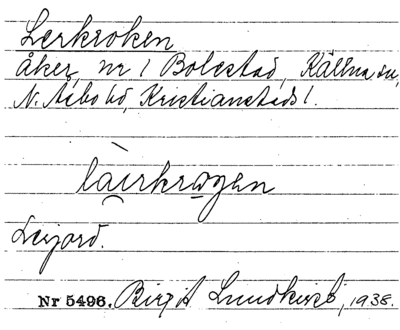 Lerkroken
åker, nr 1 Bolestad, Källna sn,
N. Åsbo hd, Kristianstads l.
Lerjord.
Nr 5496. Birgit Lundkvist, 1938.